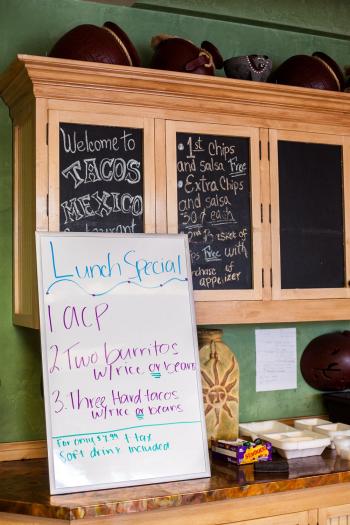 Welcome to
TACOS
MEXICO
Restaurant
1st Chips
and salsa Free
Extra Chips
and salsa
30¢ each
2nd Basket of
Free with
purchase of
appetizer
Lunch Special
1 ACP
2. Two burritos
w/rice or beans
3. Three Hard tacos
w/rice or beans
For only $7.99 + tax
Soft drink included